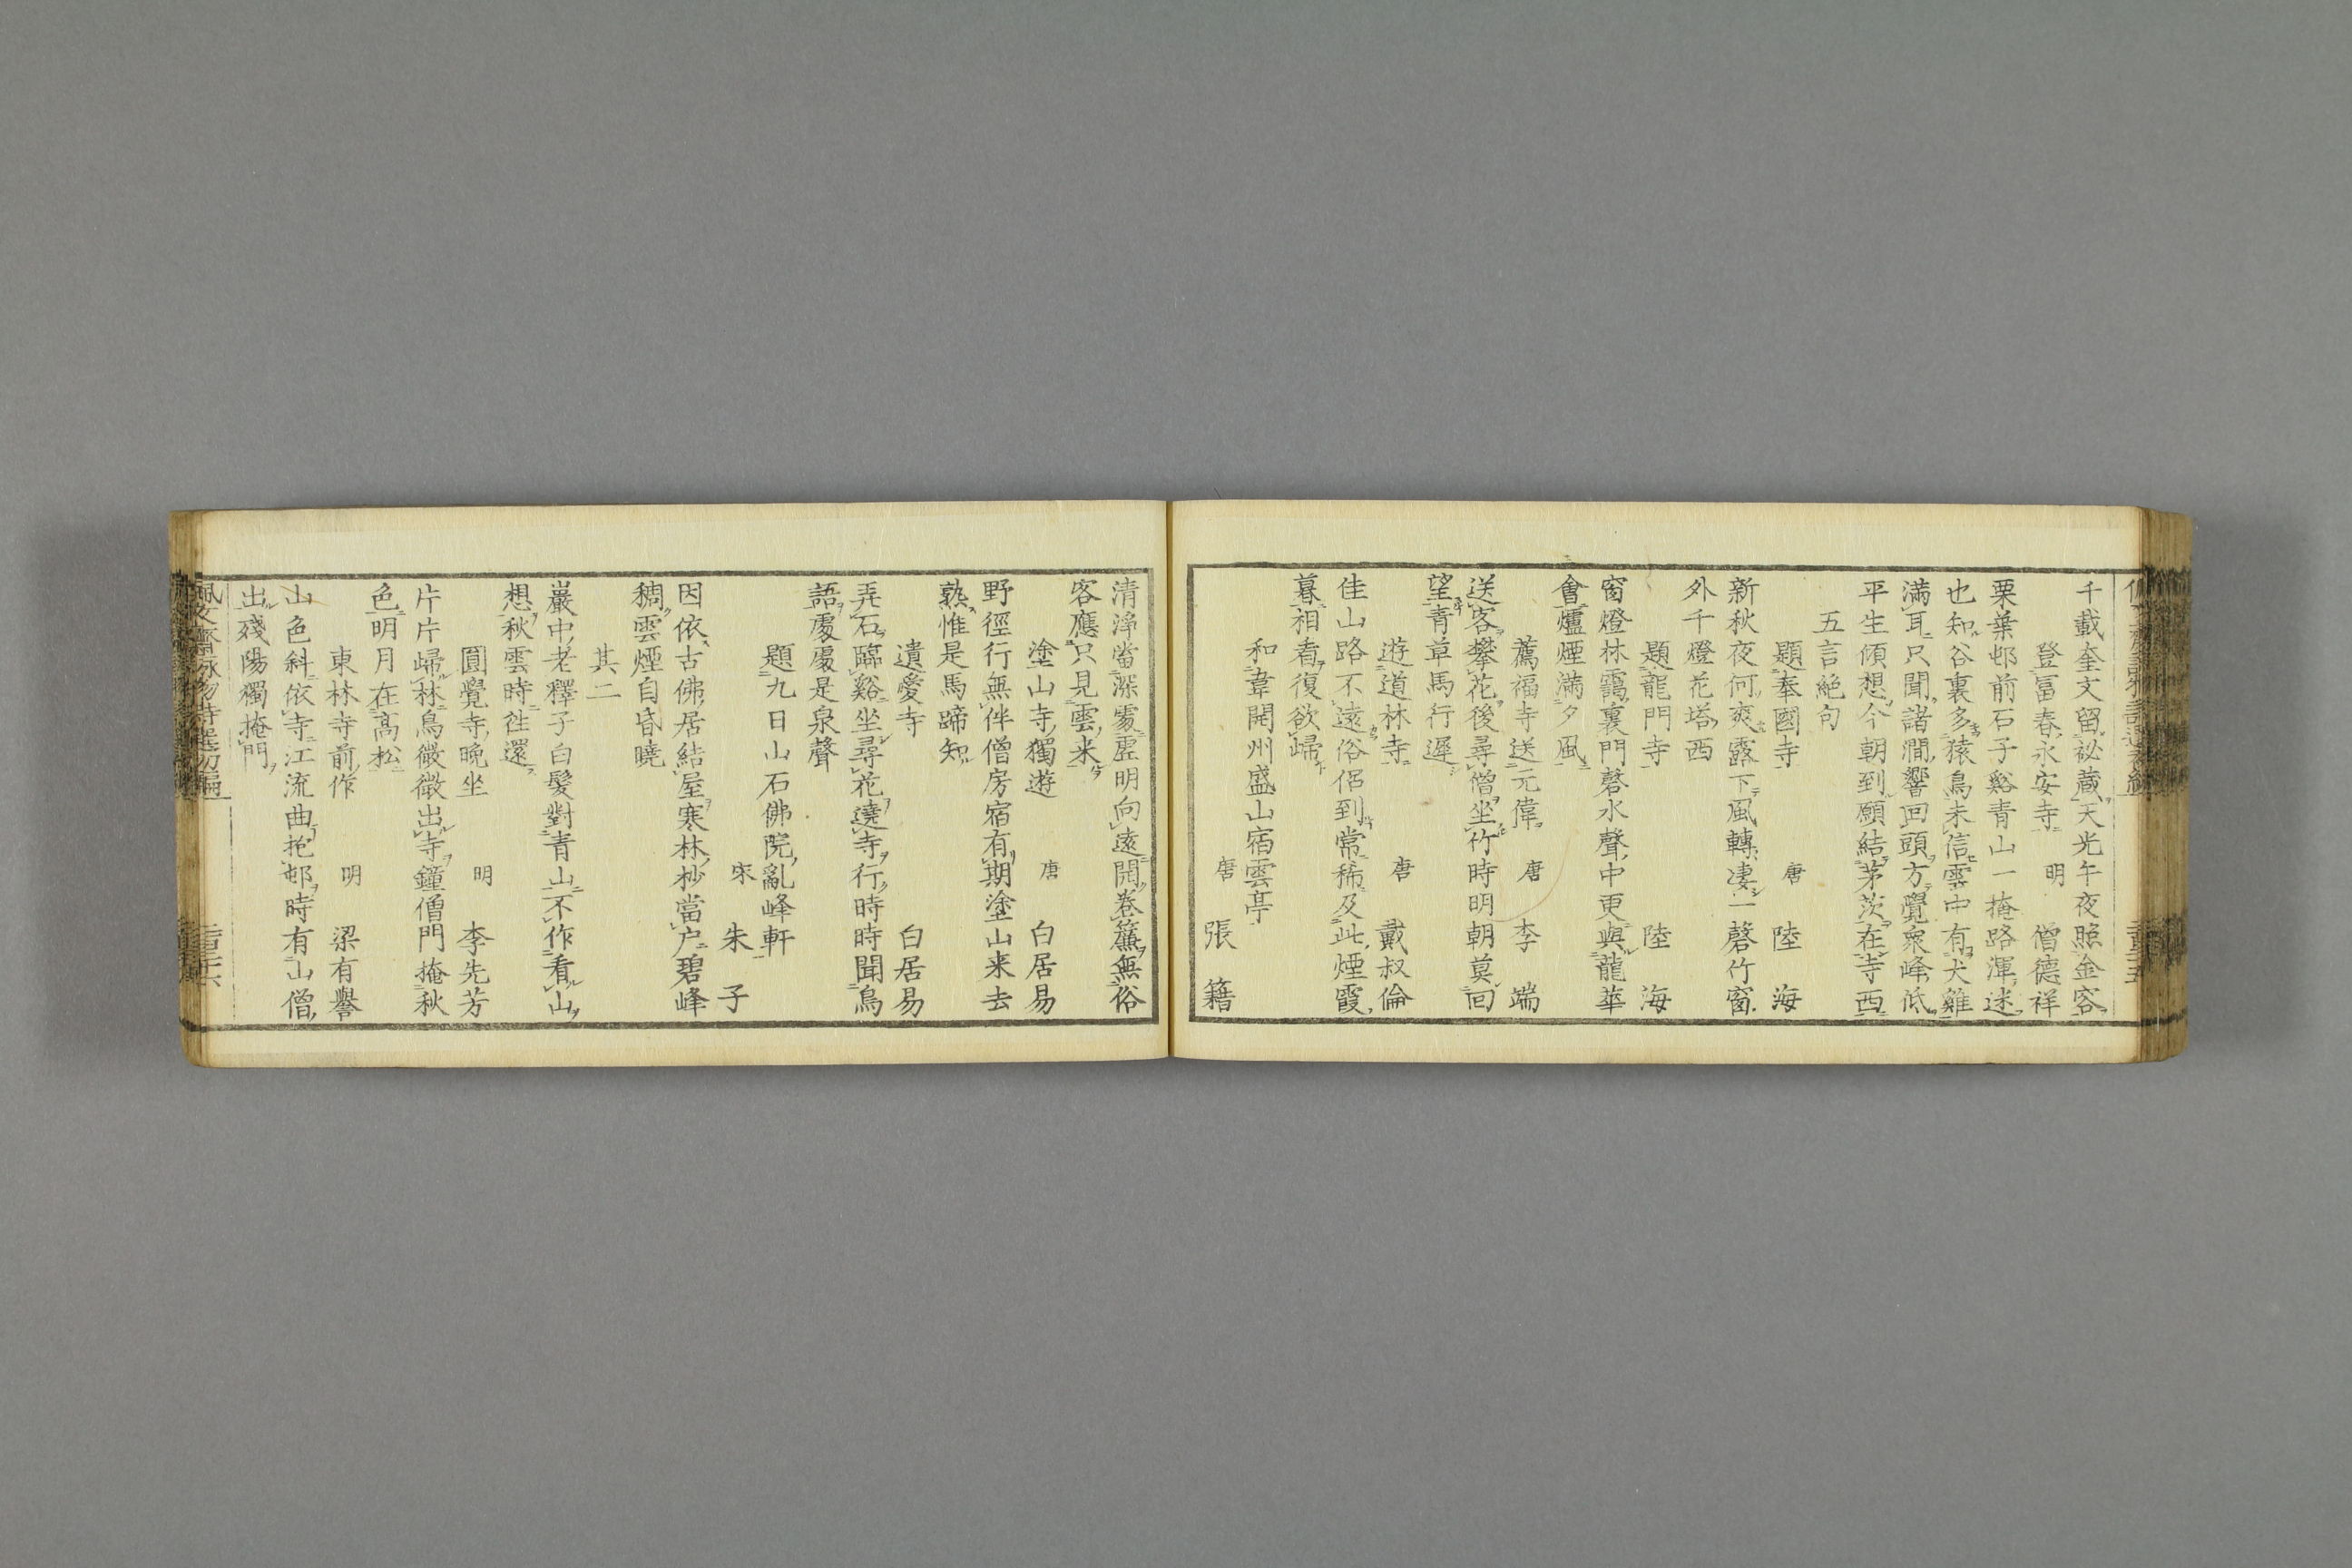 千載奎文留祕藏天光午夜照金容
登富春永安寺　明　僧德祥
栗葉邨前石子谿青山一掩路渾迷
也知谷裏多猿鳥未信雲中有犬雞
滿耳只聞諸澗響回頭方覺衆峰低
平生傾想今朝到願結茅茨在寺西
五言絶句
題奉國寺　唐　陸海
新秋夜何爽露下風轉凄一磬竹窗
外千燈花塔西
題龍門寺　陸海
窗燈林靄裏門磬水聲中更與龍華
會爐煙滿夕風
薦福寺送元偉　唐　李端
送客攀花後尋僧坐竹時明朝莫回
望青草馬行遲
遊道林寺　唐　戴叔倫
佳山路不遠俗侶到常稀及此煙霞
暮相看復欲歸
和韋開州盛山宿雲亭
唐　張籍
清淨當深處虛明向遠開卷簾無俗
客應只見雲來
塗山寺獨遊　唐　白居易
野徑行無伴僧房宿有期塗山來去
熟惟是馬蹄知
遺愛寺　白居易
弄石臨谿坐尋花遶寺行時時聞鳥
語處處是泉聲
題九日山石佛院亂峰軒
宋　朱子
因依古佛居結屋寒林杪當户碧峰
稠雲煙自昏曉
其二
巖中老釋子白髮對青山不作看山
想秋雲時往還
圓覺寺晩坐　明　李先芳
片片歸林鳥微微出寺鐘僧門掩秋
色明月在高松
東林寺前作　明　梁有譽
山色斜依寺江流曲抱邨時有山僧
出殘陽獨掩門
佩文齋詠物詩選初編